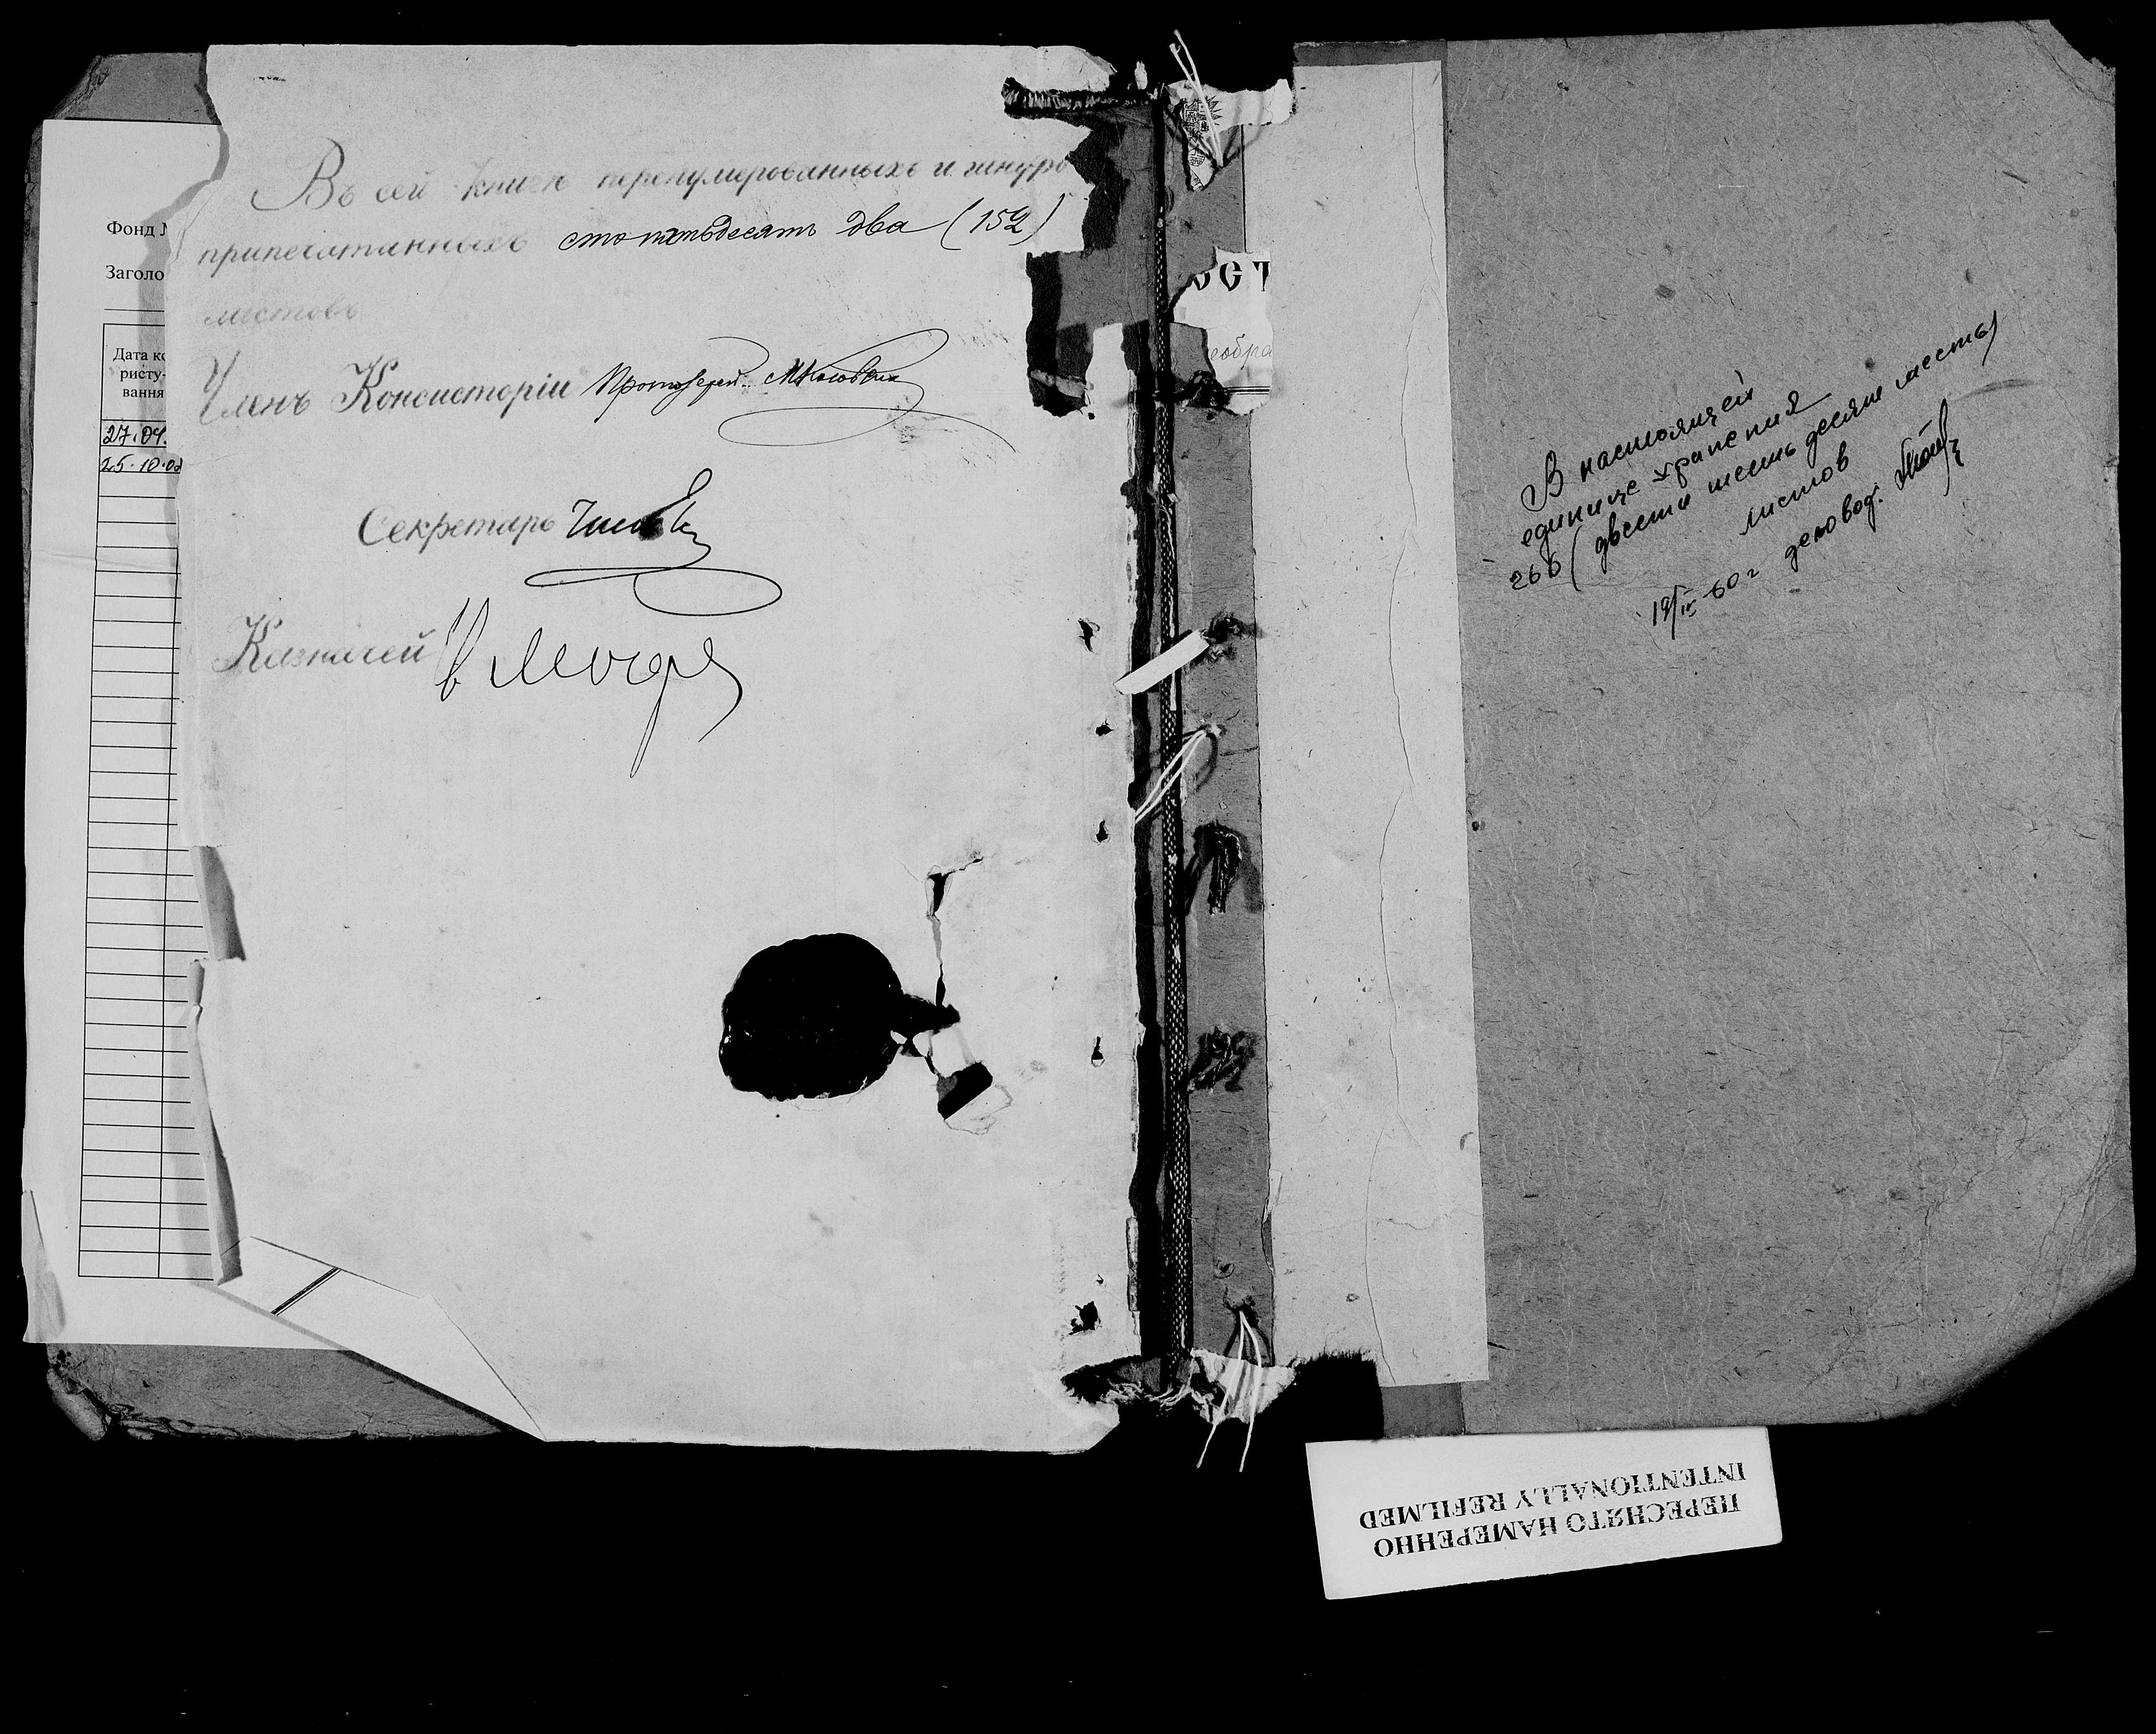 Фонд
Заголо
Дата ко
ристу-
вання
27.04.
25.10.0
Въ сей книгѣ перенумерованныхъ и шнуро
припечатанныхъ сто пятьдесятъ два (152)
листовъ
Членъ Консисторіи Протоіерей
Секретарь
Казначей
ОСТ
еобра
В настоящей
единице хранения
266 (двести шесть десят шесть)
листов
19/IV-60 г деловод.
ПЕРЕСНЯТО НАМЕРЕННО
INTENTIONALLY REFILMED